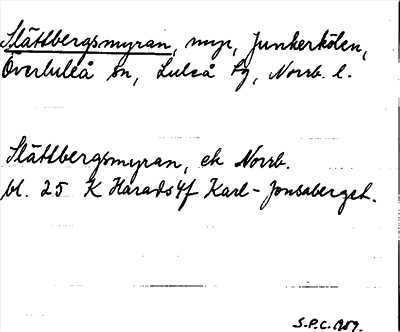 Slättbergsmyran, myr, Junkerkölen,
Överluleå sn, Luleå tg, Norrb. l.
Slättbergsmyran, ek Norrb.
bl. 25 K Harads 4f Karl-Jonsaberget.
S.P.C. 1959.